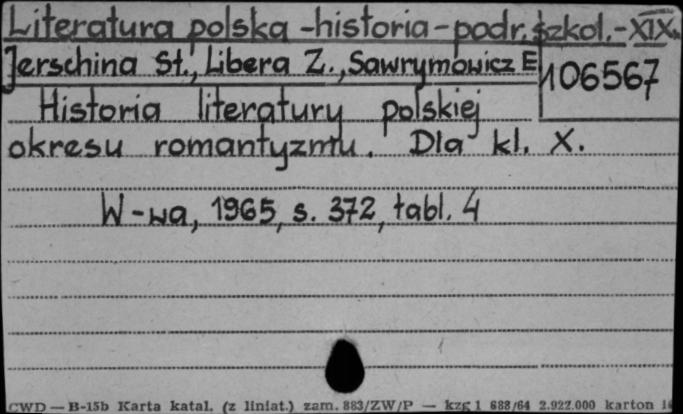 Literatura polska - historia - podr. szkol. - XIX w.
Jerschina St., Libera Z., Sawrymowicz E
106567
Historia literatury polskiej
okresu romantyzmu. Dla kl. X.
W-wa, 1965, s. 372, tabl. 4
CWD — B-15b Karta katal. (z liniat.) zam. 883/ZW/P — kzg 1 688/64 2.922.000 karton